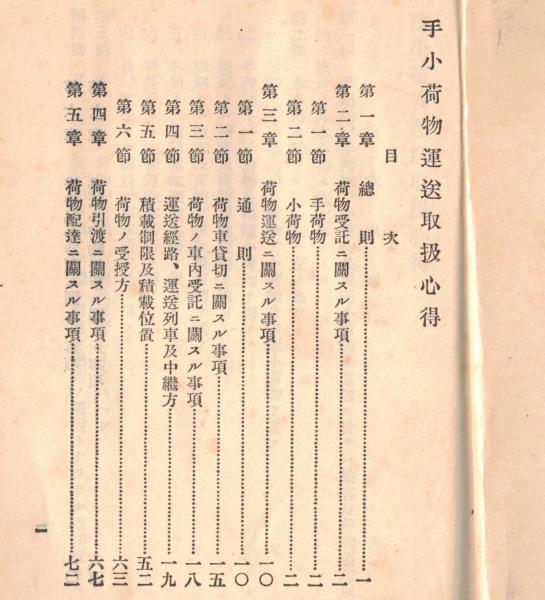 手小荷物運送取扱心得
目次
第一章 總則……一
第二章 荷物受託ニ關スル事項……二
第一節 手荷物……二
第二節 小荷物……二
第三章 荷物運送ニ關スル事項……一〇
第一節 通則……一〇
第二節 荷物車貸切ニ關スル事項……一五
第三節 荷物ノ車內受託ニ關スル事項……一八
第四節 運送經路、運送列車及中繼方……一九
第五節 積載制限及積載位置……五二
第六節 荷物ノ受授方……六三
第四章 荷物引渡ニ關スル事項……六七
第五章 荷物配達ニ關スル事項……七二